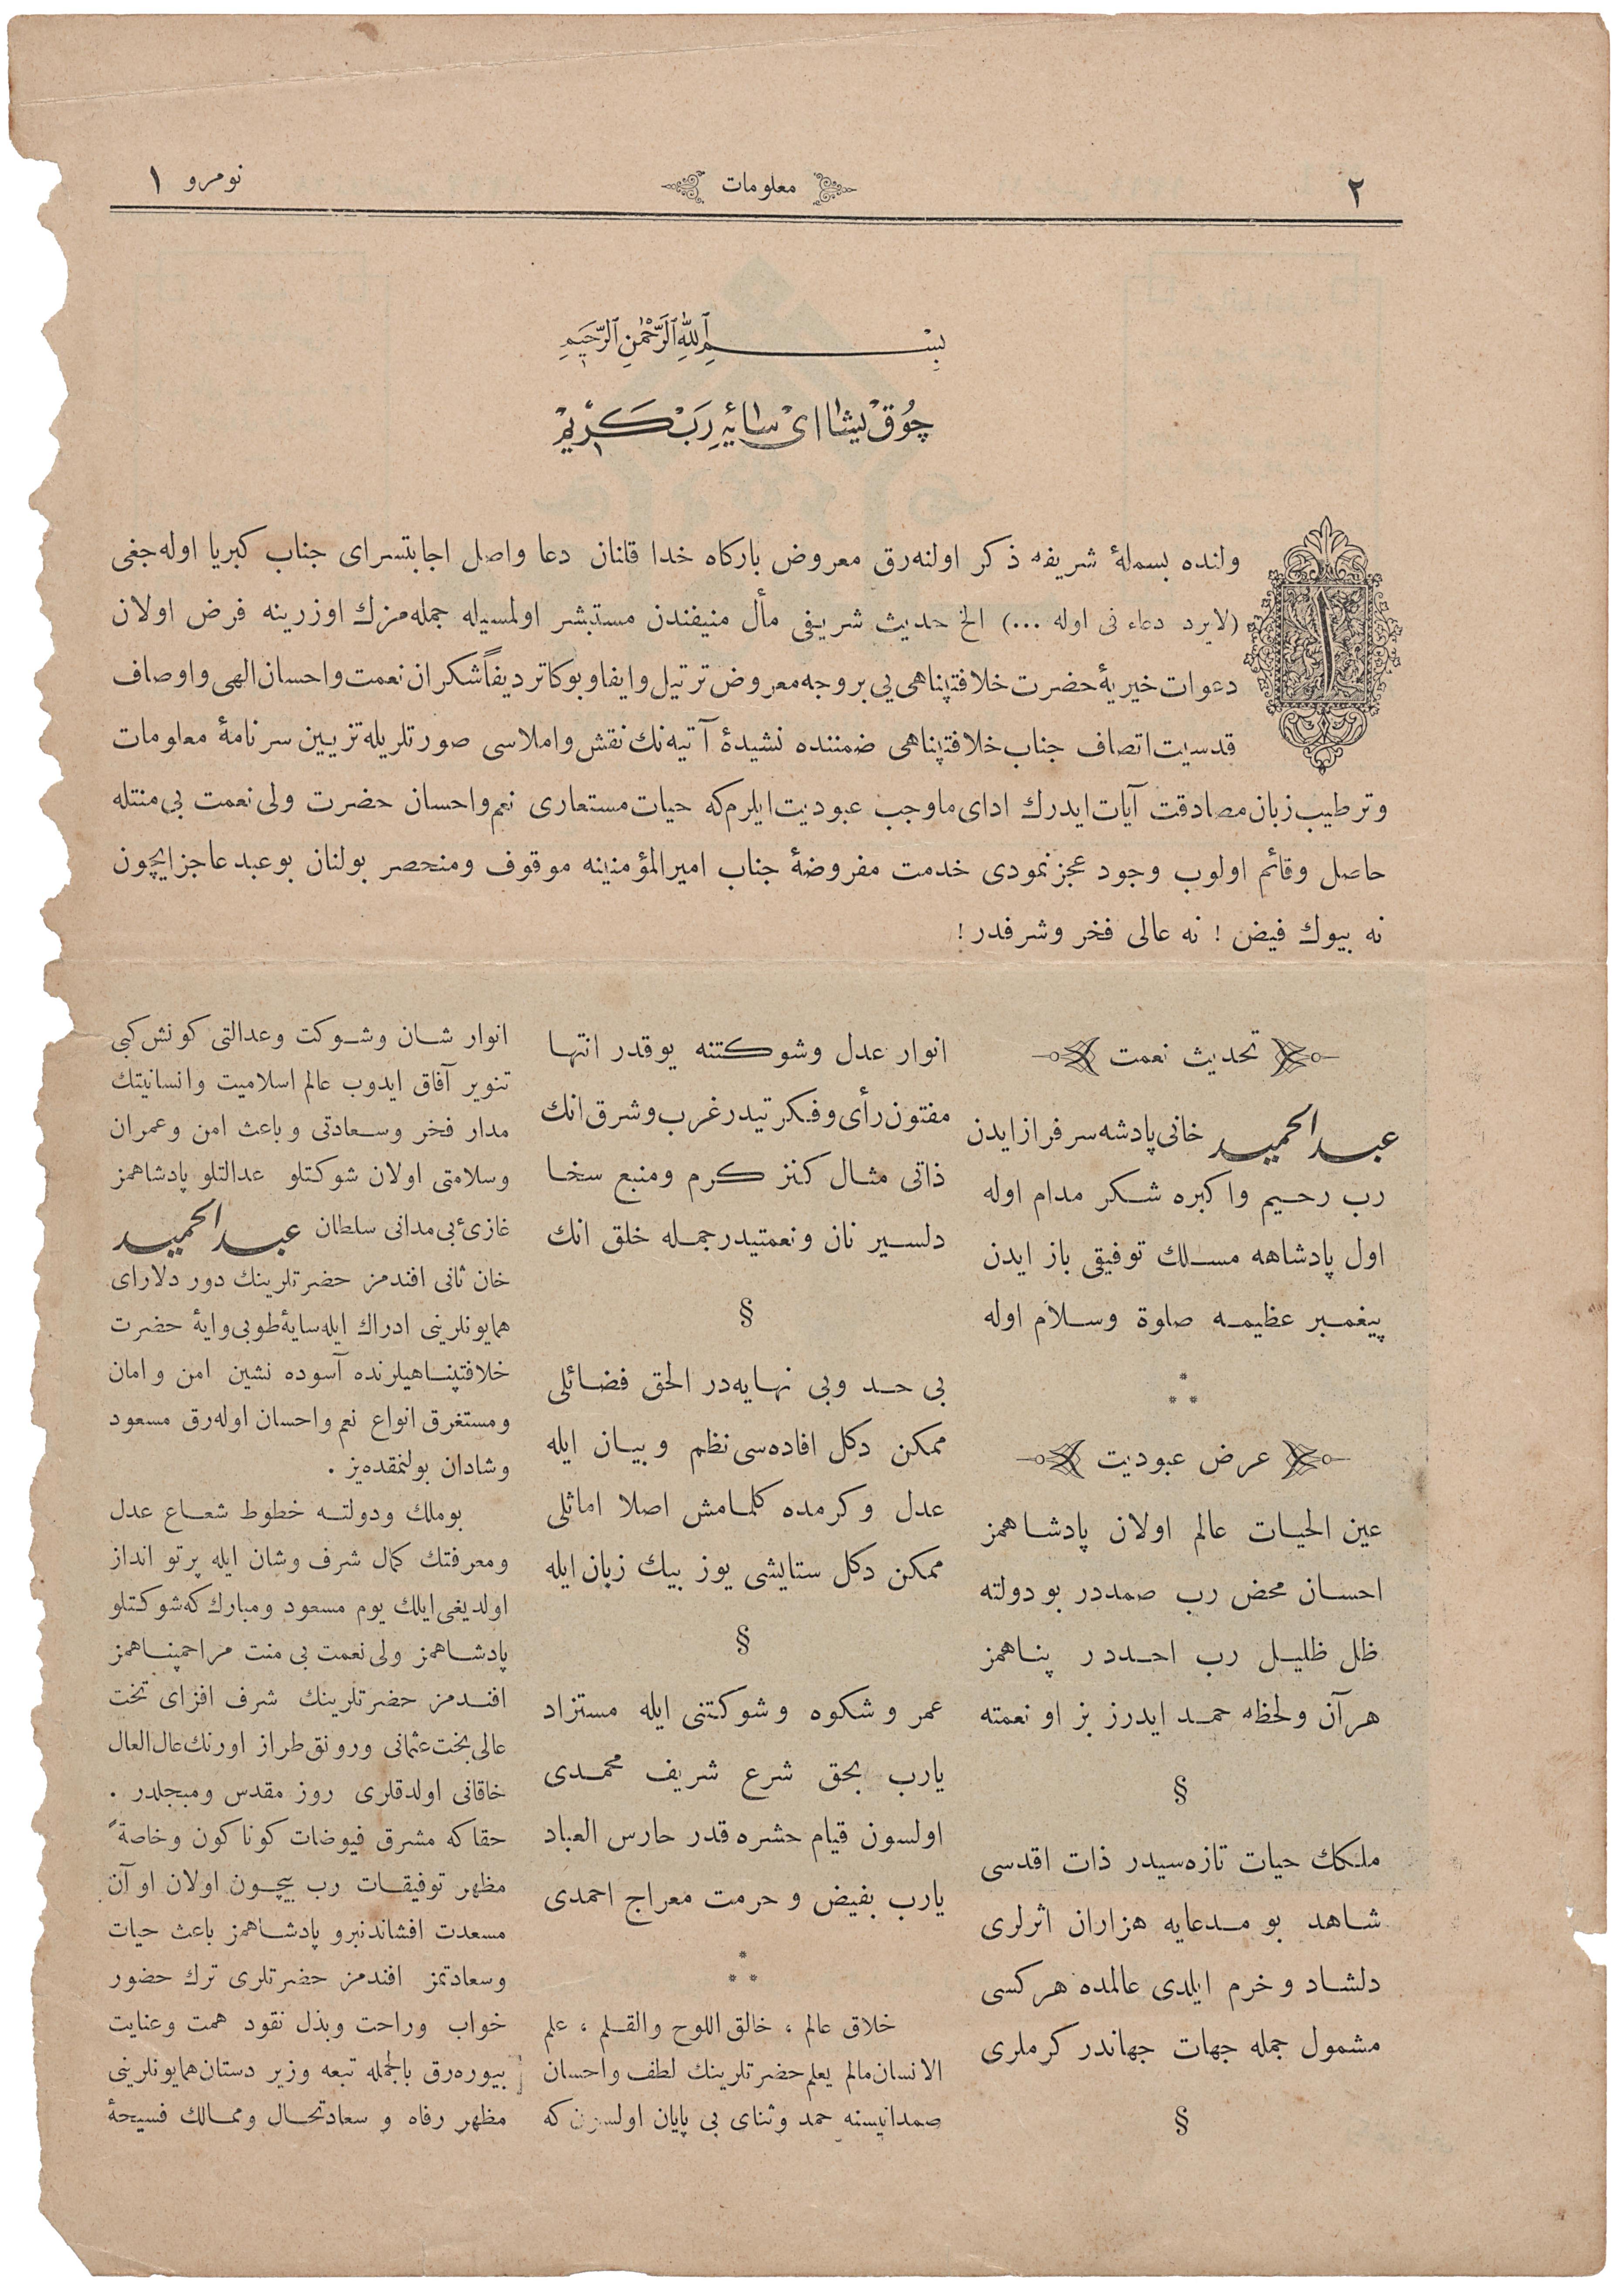 ٢
معلومات
نومرو ١
بسم الله الرحمن الرحيم
چوق يشا اى سايۀ رب كريم
اولنده بسملۀ شريفه ذكر اولنه‌رق معروض باركاه خدا قلنان دعا واصل اجابتسراى جناب كبريا اوله‌جغى
(لايرد دعاء فى اوله ...) الخ حديث شريفى مأل منيفندن مستبشر اولمسيله جمله‌مزك اوزرينه فرض اولان
دعوات خيريۀ حضرت خلافتپناهى‌يى بر وجه معروض ترتيل وايفا وبوكا ترديفاً شكران نعمت واحسان الهى واوصاف
قدسيت اتصاف جناب خلافتپناهى ضمننده نشيدۀ آتيه‌نك نقش واملاسى صورتلريله تزيين سرنامۀ معلومات
وترطيب زبان مصادقت آيات ايدرك اداى ماوجب عبوديت ايلرم كه حيات مستعارى نعم واحسان حضرت ولى نعمت بى منتله
حاصل وقائم اولوب وجود عجز نمودى خدمت مفروضۀ جناب اميرالمؤمنينه موقوف ومنحصر بولنان بو عبد عاجز ايچون
نه بيوك فيض ! نه عالى فخر وشرفدر !
تحديث نعمت
عبدالحميد خانى پادشه سرفراز ايدن
رب رحيم واكبره شكر مدام اوله
اول پادشاهه مسلك توفيقى باز ايدن
پيغمبر عظيمه صلوة وسلام اوله
***
عرض عبوديت
عين الحيات عالم اولان پادشاهمز
احسان محض رب صمددر بو دولته
ظل ظليل رب احددر پناهمز
هر آن ولحظه حمد ايدرز بز او نعمته
§
ملكك حيات تازه‌سيدر ذات اقدسى
شاهد بو مدعايه هزاران اثرلرى
دلشاد وخرم ايلدى عالمده هركسى
مشمول جمله جهات جهاندر كرملرى
§
انوار عدل وشوكتنه يوقدر انتها
مفتون رأى وفكرتيدر غرب وشرق انك
ذاتى مثال كنز كرم ومنبع سخا
دلسير نان ونعمتيدر جمله خلق انك
§
بى حد وبى نهايه‌در الحق فضائلى
ممكن دكل افاده‌سى نظم وبيان ايله
عدل وكرمده كلمامش اصلا اماثلى
ممكن دكل ستايشى يوز بيك زبان ايله
§
عمر وشكوه وشوكتنى ايله مستزاد
يارب بحق شرع شريف محمدى
اولسون قيام حشره قدر حارس العباد
يارب بفيض وحرمت معراج احمدى
***
خلاق عالم ، خالق اللوح والقلم ، علم
الانسان مالم يعلم حضرتلرينك لطف واحسان
صمدانيسنه حمد وثناى بى پايان اولسون كه
انوار شان وشوكت وعدالتى كونش كبى
تنوير آفاق ايدوب عالم اسلاميت وانسانيتك
مدار فخر وسعادتى وباعث امن وعمران
وسلامتى اولان شوكتلو عدالتلو پادشاهمز
غازئ بى مدانى سلطان عبدالحميد
خان ثانى افندمز حضرتلرينك دور دلاراى
همايونلرينى ادراك ايله سايۀ طوبى‌وايۀ حضرت
خلافتپناهيلرنده آسوده نشين امن وامان
ومستغرق انواع نعم واحسان اوله‌رق مسعود
وشادان بولنمقده‌يز .
بوملك ودولتـه خطوط شعاع عدل
ومعرفتك كمال شرف وشان ايله پرتو انداز
اولديغى ايلك يوم مسعود ومبارك كه شوكتلو
پادشاهمز ولى نعمت بى منت مراحمپناهمز
افندمز حضرتلرينك شرف افزاى تخت
عالى بخت عثمانى ورونق طراز اورنك عال العال
خاقانى اولدقلرى روز مقدس ومبجلدر .
حقا كه مشرق فيوضات كوناكون وخاصةً
مظهر توفيقات رب بيچون اولان او آن
مسعدت افشاندنبرو پادشاهمز باعث حيات
وسعادتمز افندمز حضرتلرى ترك حضور
خواب وراحت وبذل نقود همت وعنايت
بيوره‌رق بالجمله تبعه وزير دستان همايونلرينى
مظهر رفاه و سعادتحال وممالك فسيحۀ